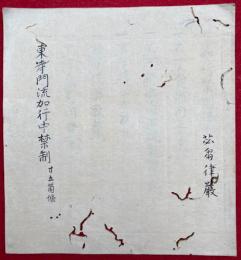 苾芻律嚴
東寺門流加行中禁制 廿五箇條